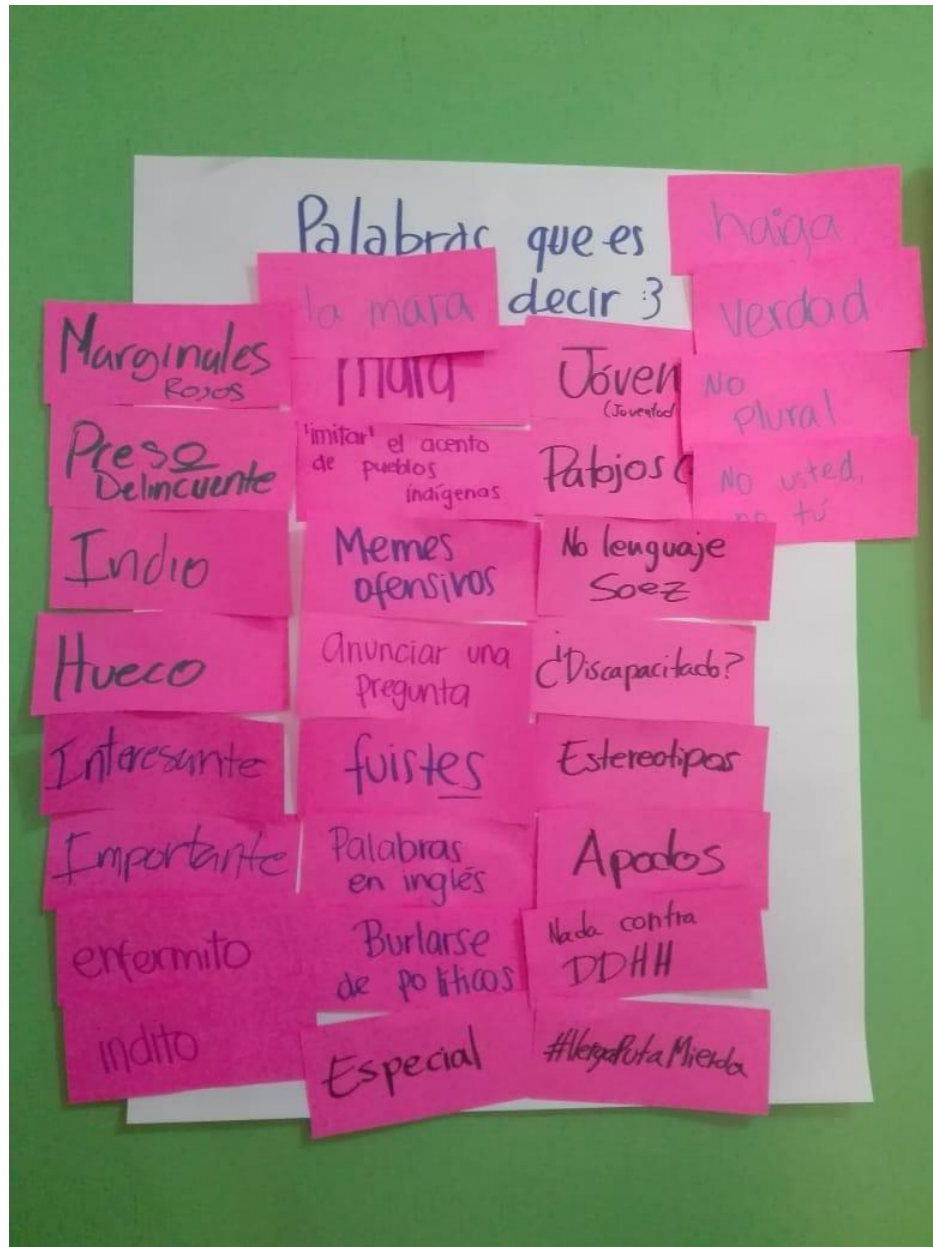 Palabras que es
decir :3
haiga
verdad
No
plural
No usted,
no tú
Marginales
Rojos
Preso
Delincuente
Indio
Hueco
Interesante
Importante
enfermito
indito
la mara
mara
'imitar' el acento
de pueblos
indígenas
Memes
ofensivos
Anunciar una
Pregunta
fuistes
Palabras
en inglés
Burlarse
de políticos
Especial
Joven
(Juventud
Patojos (
No lenguaje
Soez
¿Discapacitado?
Estereotipos
Apodos
Nada contra
DDHH
#VergaPutaMierda